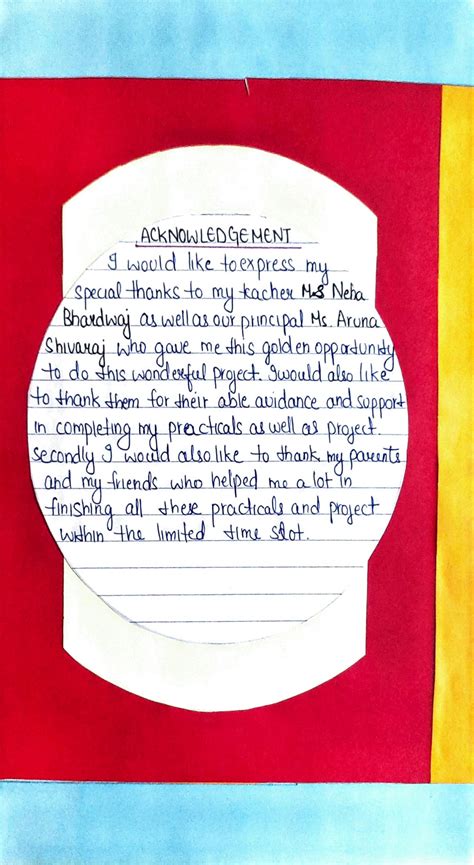 ACKNOWLEDGEMENT
I would like to express my
special thanks to my teacher Ms Neha
Bhardwaj as well as our principal Ms. Aruna
Shivaraj who gave me this golden opportunity
to do this wonderful project. I would also like
to thank them for their able avidance and support
in completing my practicals as well as project.
Secondly I would also like to thank my parents
and my friends who helped me a lot in
finishing all these practicals and project
within the limited time slot.